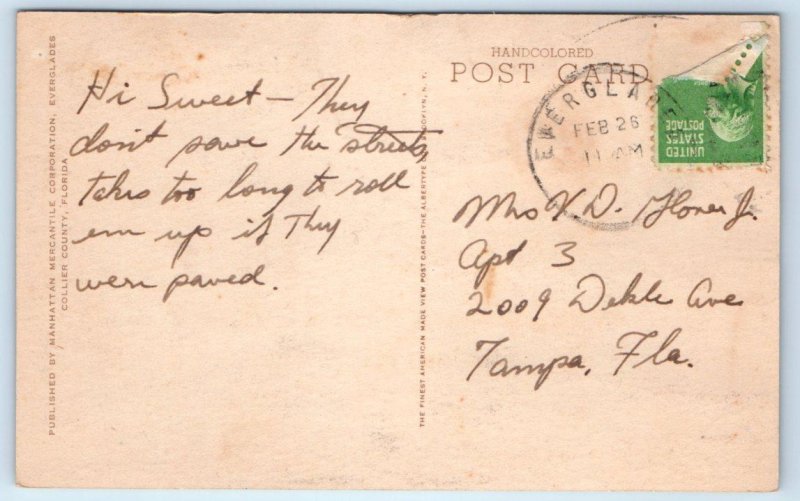 Hi Sweet — They
don't pave the streets,
takes too long to roll
em up if they
were paved.
HANDCOLORED
POST CARD
FEB 26
11 AM
UNITED
STATES
POSTAGE
Apt 3
2009 Dekle Ave
Tampa, Fla.
PUBLISHED BY MANHATTAN MERCANTILE CORPORATION, EVERGLADES
COLLIER COUNTY, FLORIDA
THE FINEST AMERICAN MADE VIEW POST CARDS—THE ALBERTYPE BROOKLYN, N. Y.